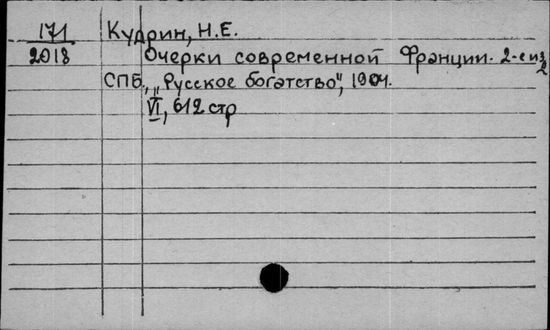 171 Кудрин, Н.Е.
2018 Очерки современной Франции. 2-е изд
СПБ., „Русское богатство", 1904.
VI, 612 стр